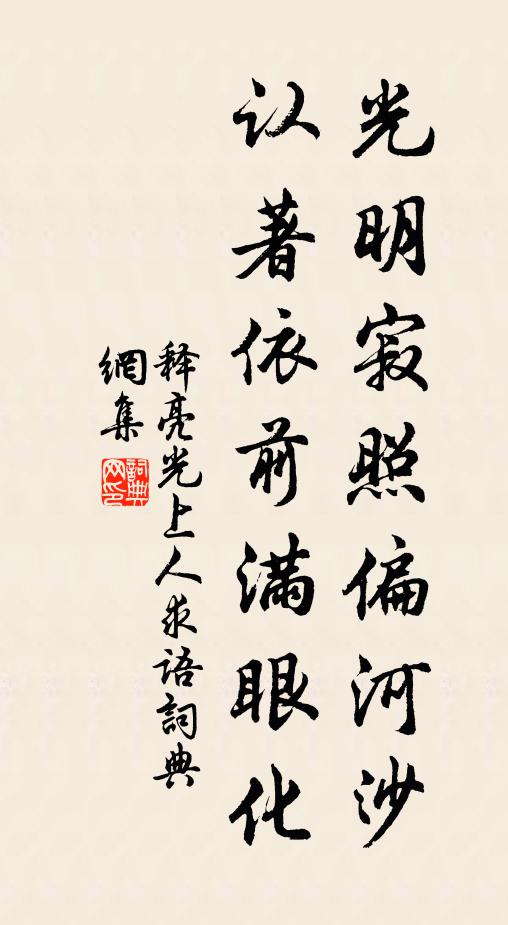 光明寂照偏河沙
认著依前满眼化
释亮光上人求语詞典
網集
詞典网印